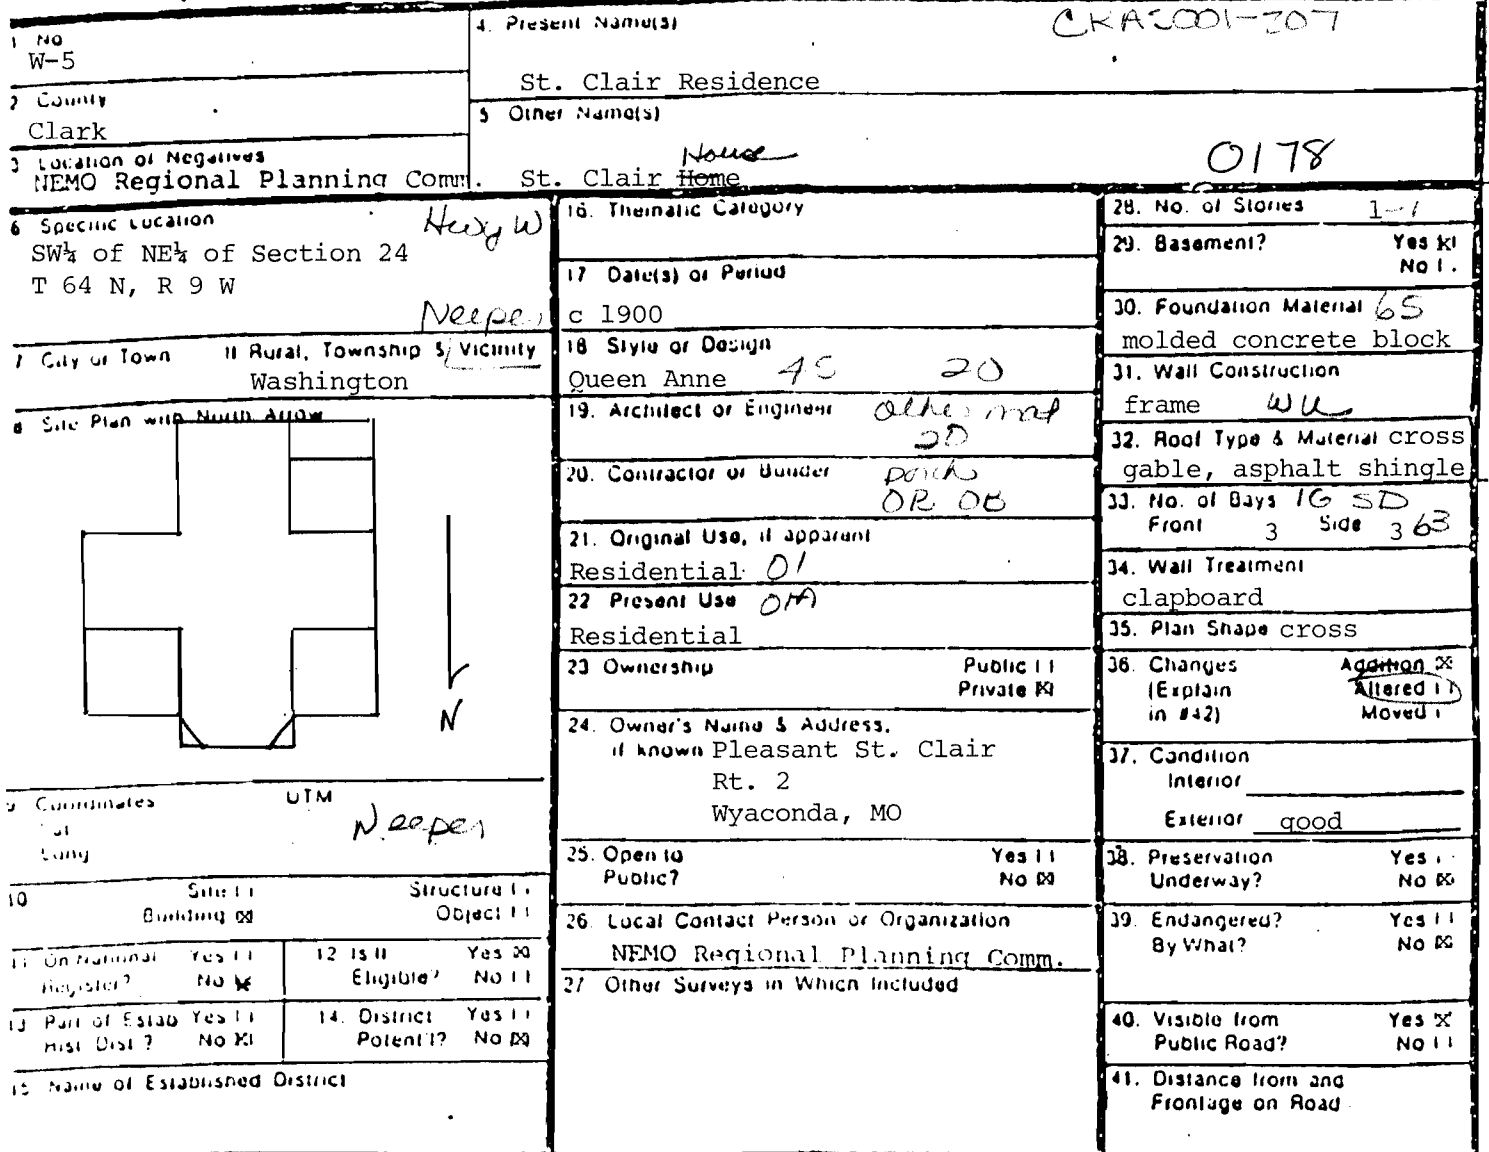 1 No
W-5
2 County
Clark
3 Location of Negatives
NEMO Regional Planning Comm.
4. Present Name(s)
St. Clair Residence
5 Other Name(s)
House
St. Clair Home
0178
6 Specific Location
Hwy W
SW¼ of NE¼ of Section 24
T 64 N, R 9 W
Neeper
7 City or Town If Rural, Township & Vicinity
Washington
8 Site Plan with North Arrow
N
9 Coordinates UTM
Lat
Long
Neeper
10 Site Structure
Building ☒ Object
11 On National Register? Yes No ☒
12 Is It Eligible? Yes ☒ No
13 Part of Estab Hist Dist? Yes No ☒
14. District Potent'l? Yes No ☒
15 Name of Established District
16. Thematic Category
17 Date(s) or Period
c 1900
18 Style or Design
Queen Anne 45 20
19. Architect or Engineer
20
20. Contractor or Builder
porch
OR OB
21. Original Use, if apparent
Residential 01
22 Present Use
Residential
23 Ownership Public
Private ☒
24. Owner's Name & Address,
if known Pleasant St. Clair
Rt. 2
Wyaconda, MO
25. Open to Yes
Public? No ☒
26. Local Contact Person or Organization
NEMO Regional Planning Comm.
27 Other Surveys in Which Included
28. No. of Stories
29. Basement? Yes ☒
No
30. Foundation Material 65
molded concrete block
31. Wall Construction
frame
32. Roof Type & Material cross
gable, asphalt shingle
33. No. of Bays IG SD
Front 3 Side 3 63
34. Wall Treatment
clapboard
35. Plan Shape cross
36. Changes Addition ☒
(Explain Altered
in #42) Moved
37. Condition
Interior
Exterior good
38. Preservation Yes
Underway? No ☒
39. Endangered? Yes
By What? No ☒
40. Visible from Yes ☒
Public Road? No
41. Distance from and
Frontage on Road